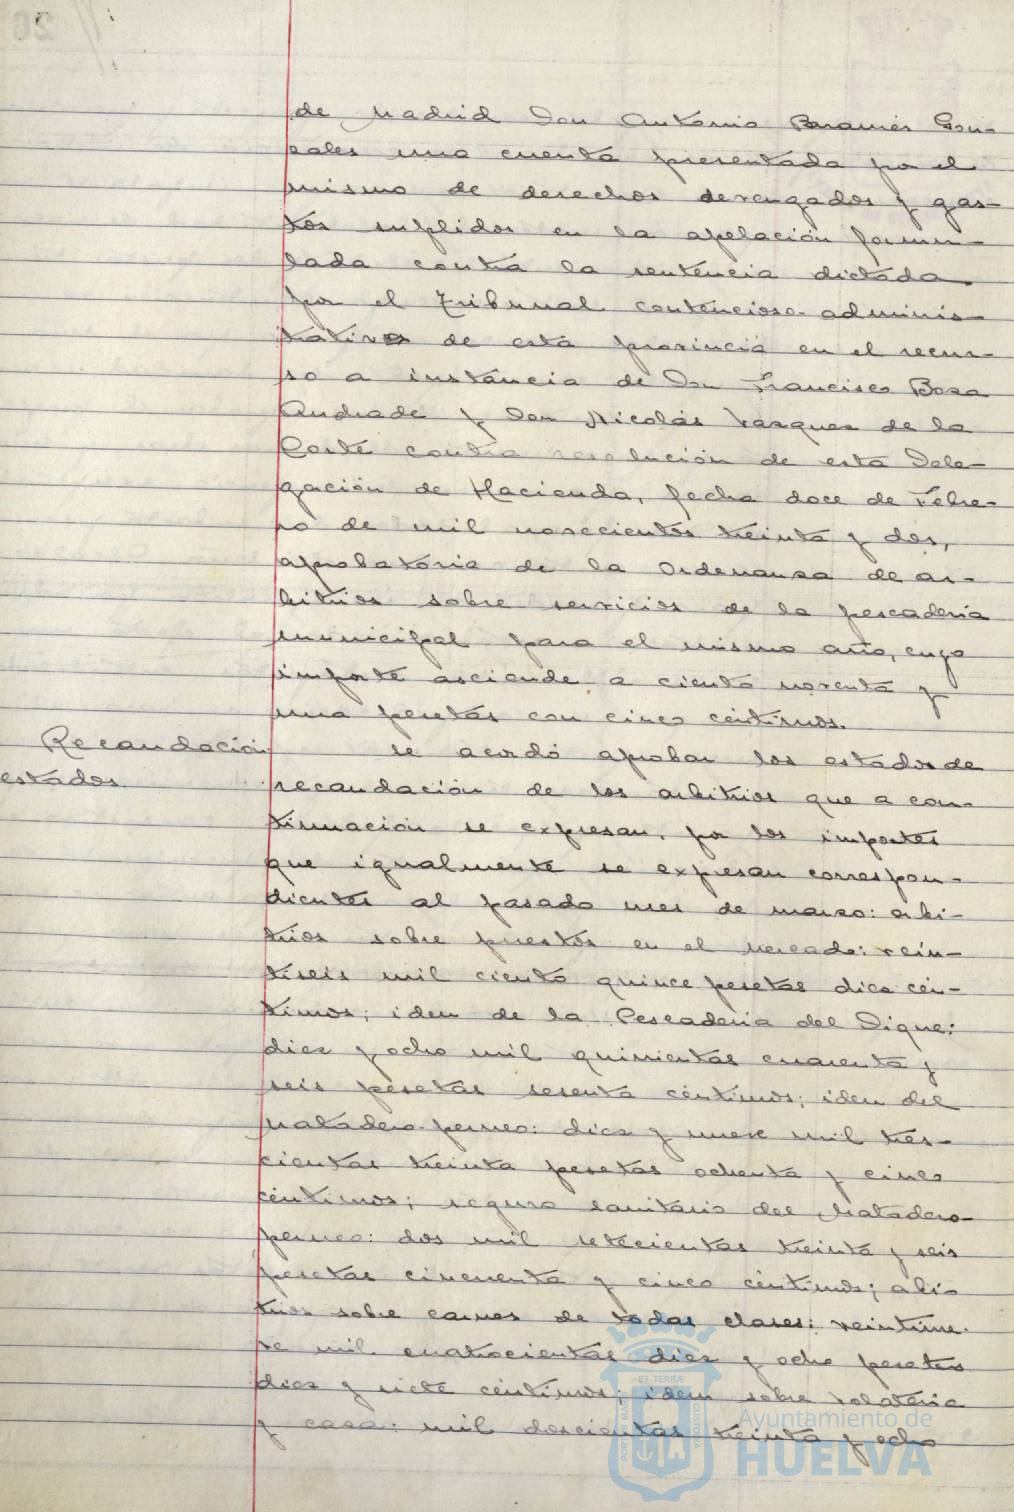 de Madrid Don Antonio Gon-
zales una cuenta presentada por el
mismo de derechos devengados y gas-
tos suplidos en la apelación formu-
lada contra la sentencia dictada
por el Tribunal contencioso-adminis-
trativo de esta provincia en el recur-
so a instancia de Don Francisco Boza
Andrade y Don Nicolás Vazquez de la
Corte contra resolución de esta Dele-
gación de Hacienda, fecha doce de Febre-
ro de mil novecientos treinta y dos,
aprobatoria de la Ordenanza de ar-
bitrios sobre servicios de la pescaderia
municipal para el mismo año, cuyo
importe asciende a ciento noventa y
una pesetas con cinco céntimos.
Recaudación
estados.
se acordó aprobar los estados de
recaudación de los arbitrios que a con-
tinuación se expresan, por los importes
que igualmente se expresan correspon-
dientes al pasado mes de marzo: arbi-
trios sobre puestos en el Mercado: vein-
tiseis mil ciento quince pesetas diez cén-
timos; iden de la Pescaderia del Dique:
diez y ocho mil quinientas cuarenta y
seis pesetas sesenta céntimos; iden del
Matadero perneo: diez y nueve mil tres-
cientas treinta pesetas ochenta y cinco
céntimos; seguro sanitario del Matadero-
perneo: dos mil setecientas treinta y seis
pesetas cincuenta y cinco céntimos; arbi-
trios sobre carnes de todas clases: veintinue-
ve mil cuatrocientas diez y ocho pesetas
diez y siete céntimos; idem sobre volateria
y caza: mil doscientas treinta y ocho
PORTUS MARIS ET TERRAE CUSTODIA
Ayuntamiento de
HUELVA